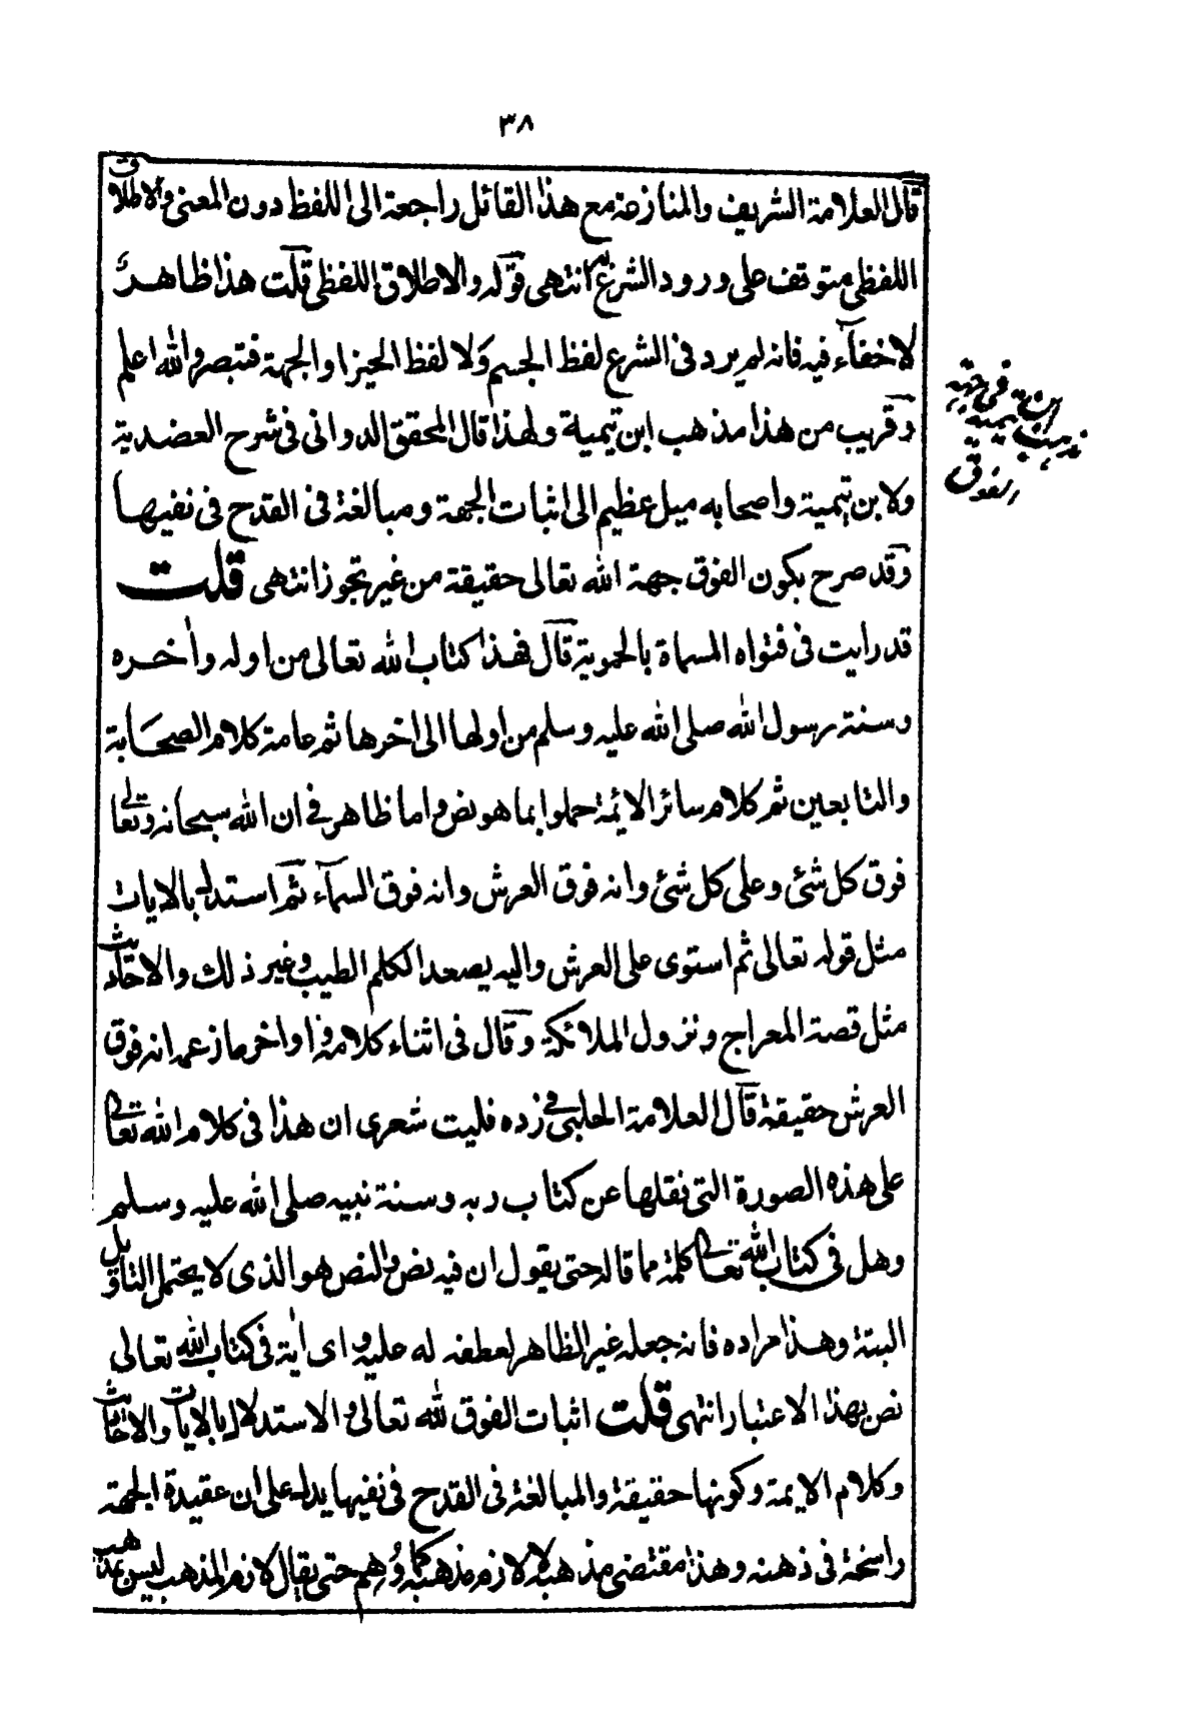 ٣٨
قال العلامة الشريف والمنازعة مع هذا القائل راجعة الى اللفظ دون المعنى والاطلاق
اللفظى متوقف على ورود الشرع به انتهى قوله والاطلاق اللفظى قلت هذا ظاهر
لاخفآء فيه فانه لم يرد فى الشرع لفظ الجسم ولا لفظ الحيز او الجهة فتبصر والله اعلم
وقريب من هذا مذهب ابن تيمية ولهذا قال المحقق الدوانى فى شرح العضدية
ولابن تيمية واصحابه ميل عظيم الى اثبات الجهة ومبالغة فى القدح فى نفيها
وقد صرح بكون الفوق جهة الله تعالى حقيقة من غير تجوز انتهى قلت
قد رايت فى فتواه المسماة بالحموية قال فهذا كتاب الله تعالى من اوله واخره
وسنة رسول الله صلى الله عليه وسلم من اولها الى اخرها ثم عامة كلام الصحابة
والتابعين ثم كلام سائر الائمة حملوا بما هو نص واما ظاهر فى ان الله سبحانه وتعالى
فوق كل شئ وعلى كل شئ وانه فوق العرش وانه فوق السمآء ثم استدل بالايات
مثل قوله تعالى ثم استوى على العرش واليه يصعد الكلم الطيب وغير ذلك والاحاديث
مثل قصة المعراج ونزول الملائكة وقال فى اثناء كلامه واواخر ما زعمه انه فوق
العرش حقيقة قال العلامة الحلبى فى رده فليت شعرى ان هذا فى كلام الله تعالى
على هذه الصورة التى نقلها عن كتاب ربه وسنة نبيه صلى الله عليه وسلم
وهل فى كتاب الله تعالى كلمة مما قاله حتى يقول ان فيه نص والنص هو الذى لا يحتمل التاويل
البتة وهذا مراده فانه جعله غير الظاهر لعطفه له عليه واى اية فى كتاب الله تعالى
نص بهذا الاعتبار انتهى قلت اثبات الفوق لله تعالى والاستدلال بالايات والاحاديث
وكلام الايمة وكونها حقيقة والمبالغة فى القدح فى نفيها يدل على ان عقيدة الجهة
راسخة فى ذهنه وهذا مقتضى مذهبه لا لازم مذهبه كما وهم حتى يقال لازم المذهب ليس بمذهب
ابن تيمية
الفوق